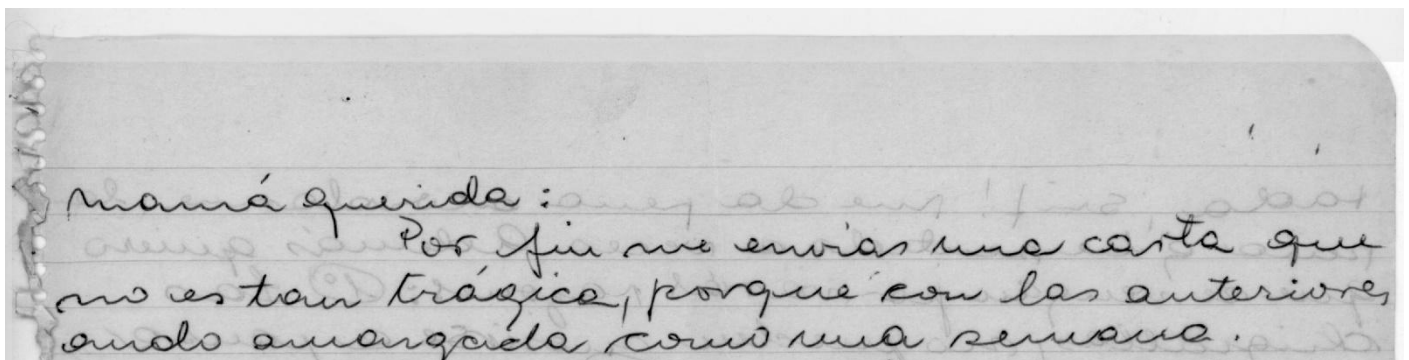 mamá querida:
Por fin me envias una carta que
no es tan trágica, porqué con las anteriores
ando amargada como una semana.